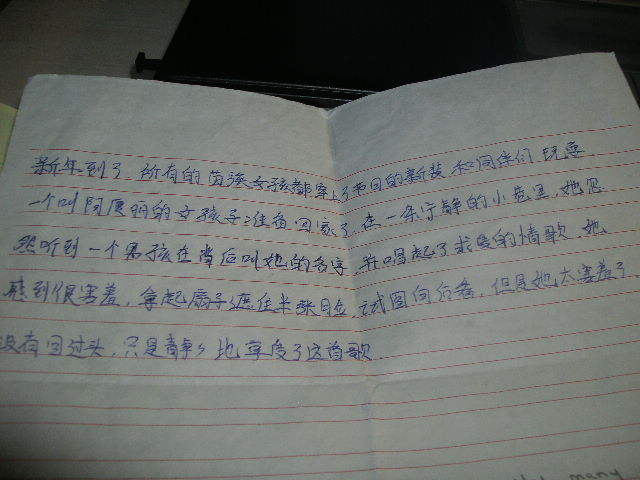 新年到了，所有的苗族女孩都穿上了节日的新装 和同伴们 玩耍
一个叫阿丽的女孩子准备回家了，在一条宁静的小巷里，她忽
然听到一个男孩在背后叫她的名字 并唱起了求爱的情歌，她
感到很害羞，拿起扇子遮住半张脸，试图向后看，但是她太害羞了
没有回过头，只是静々地享受了这首歌
many